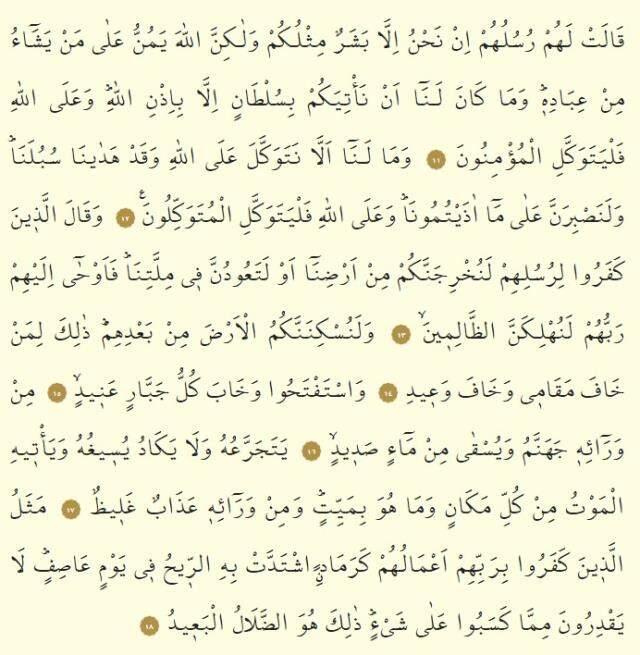 قَالَتْ لَهُمْ رُسُلُهُمْ اِنْ نَحْنُ اِلَّا بَشَرٌ مِثْلُكُمْ وَلٰكِنَّ اللّٰهَ يَمُنُّ عَلٰى مَنْ يَشَٓاءُ
مِنْ عِبَادِه۪ۜ وَمَا كَانَ لَنَٓا اَنْ نَأْتِيَكُمْ بِسُلْطَانٍ اِلَّا بِاِذْنِ اللّٰهِۜ وَعَلَى اللّٰهِ
فَلْيَتَوَكَّلِ الْمُؤْمِنُونَ ﴿١١﴾ وَمَا لَنَٓا اَلَّا نَتَوَكَّلَ عَلَى اللّٰهِ وَقَدْ هَدٰينَا سُبُلَنَاۜ
وَلَنَصْبِرَنَّ عَلٰى مَٓا اٰذَيْتُمُونَاۜ وَعَلَى اللّٰهِ فَلْيَتَوَكَّلِ الْمُتَوَكِّلُونَ۟ ﴿١٢﴾ وَقَالَ الَّذ۪ينَ
كَفَرُوا لِرُسُلِهِمْ لَنُخْرِجَنَّكُمْ مِنْ اَرْضِنَٓا اَوْ لَتَعُودُنَّ ف۪ي مِلَّتِنَاۜ فَاَوْحٰٓى اِلَيْهِمْ
رَبُّهُمْ لَنُهْلِكَنَّ الظَّالِم۪ينَۙ ﴿١٣﴾ وَلَنُسْكِنَنَّكُمُ الْاَرْضَ مِنْ بَعْدِهِمْۜ ذٰلِكَ لِمَنْ
خَافَ مَقَام۪ي وَخَافَ وَع۪يدِ ﴿١٤﴾ وَاسْتَفْتَحُوا وَخَابَ كُلُّ جَبَّارٍ عَن۪يدٍۙ ﴿١٥﴾ مِنْ
وَرَٓائِه۪ جَهَنَّمُ وَيُسْقٰى مِنْ مَٓاءٍ صَد۪يدٍۙ ﴿١٦﴾ يَتَجَرَّعُهُ وَلَا يَكَادُ يُس۪يغُهُ وَيَأْت۪يهِ
الْمَوْتُ مِنْ كُلِّ مَكَانٍ وَمَا هُوَ بِمَيِّتٍۜ وَمِنْ وَرَٓائِه۪ عَذَابٌ غَل۪يظٌ ﴿١٧﴾ مَثَلُ
الَّذ۪ينَ كَفَرُوا بِرَبِّهِمْ اَعْمَالُهُمْ كَرَمَادٍۨ اشْتَدَّتْ بِهِ الرّ۪يحُ ف۪ي يَوْمٍ عَاصِفٍۜ لَا
يَقْدِرُونَ مِمَّا كَسَبُوا عَلٰى شَيْءٍۜ ذٰلِكَ هُوَ الضَّلَالُ الْبَع۪يدُ ﴿١٨﴾